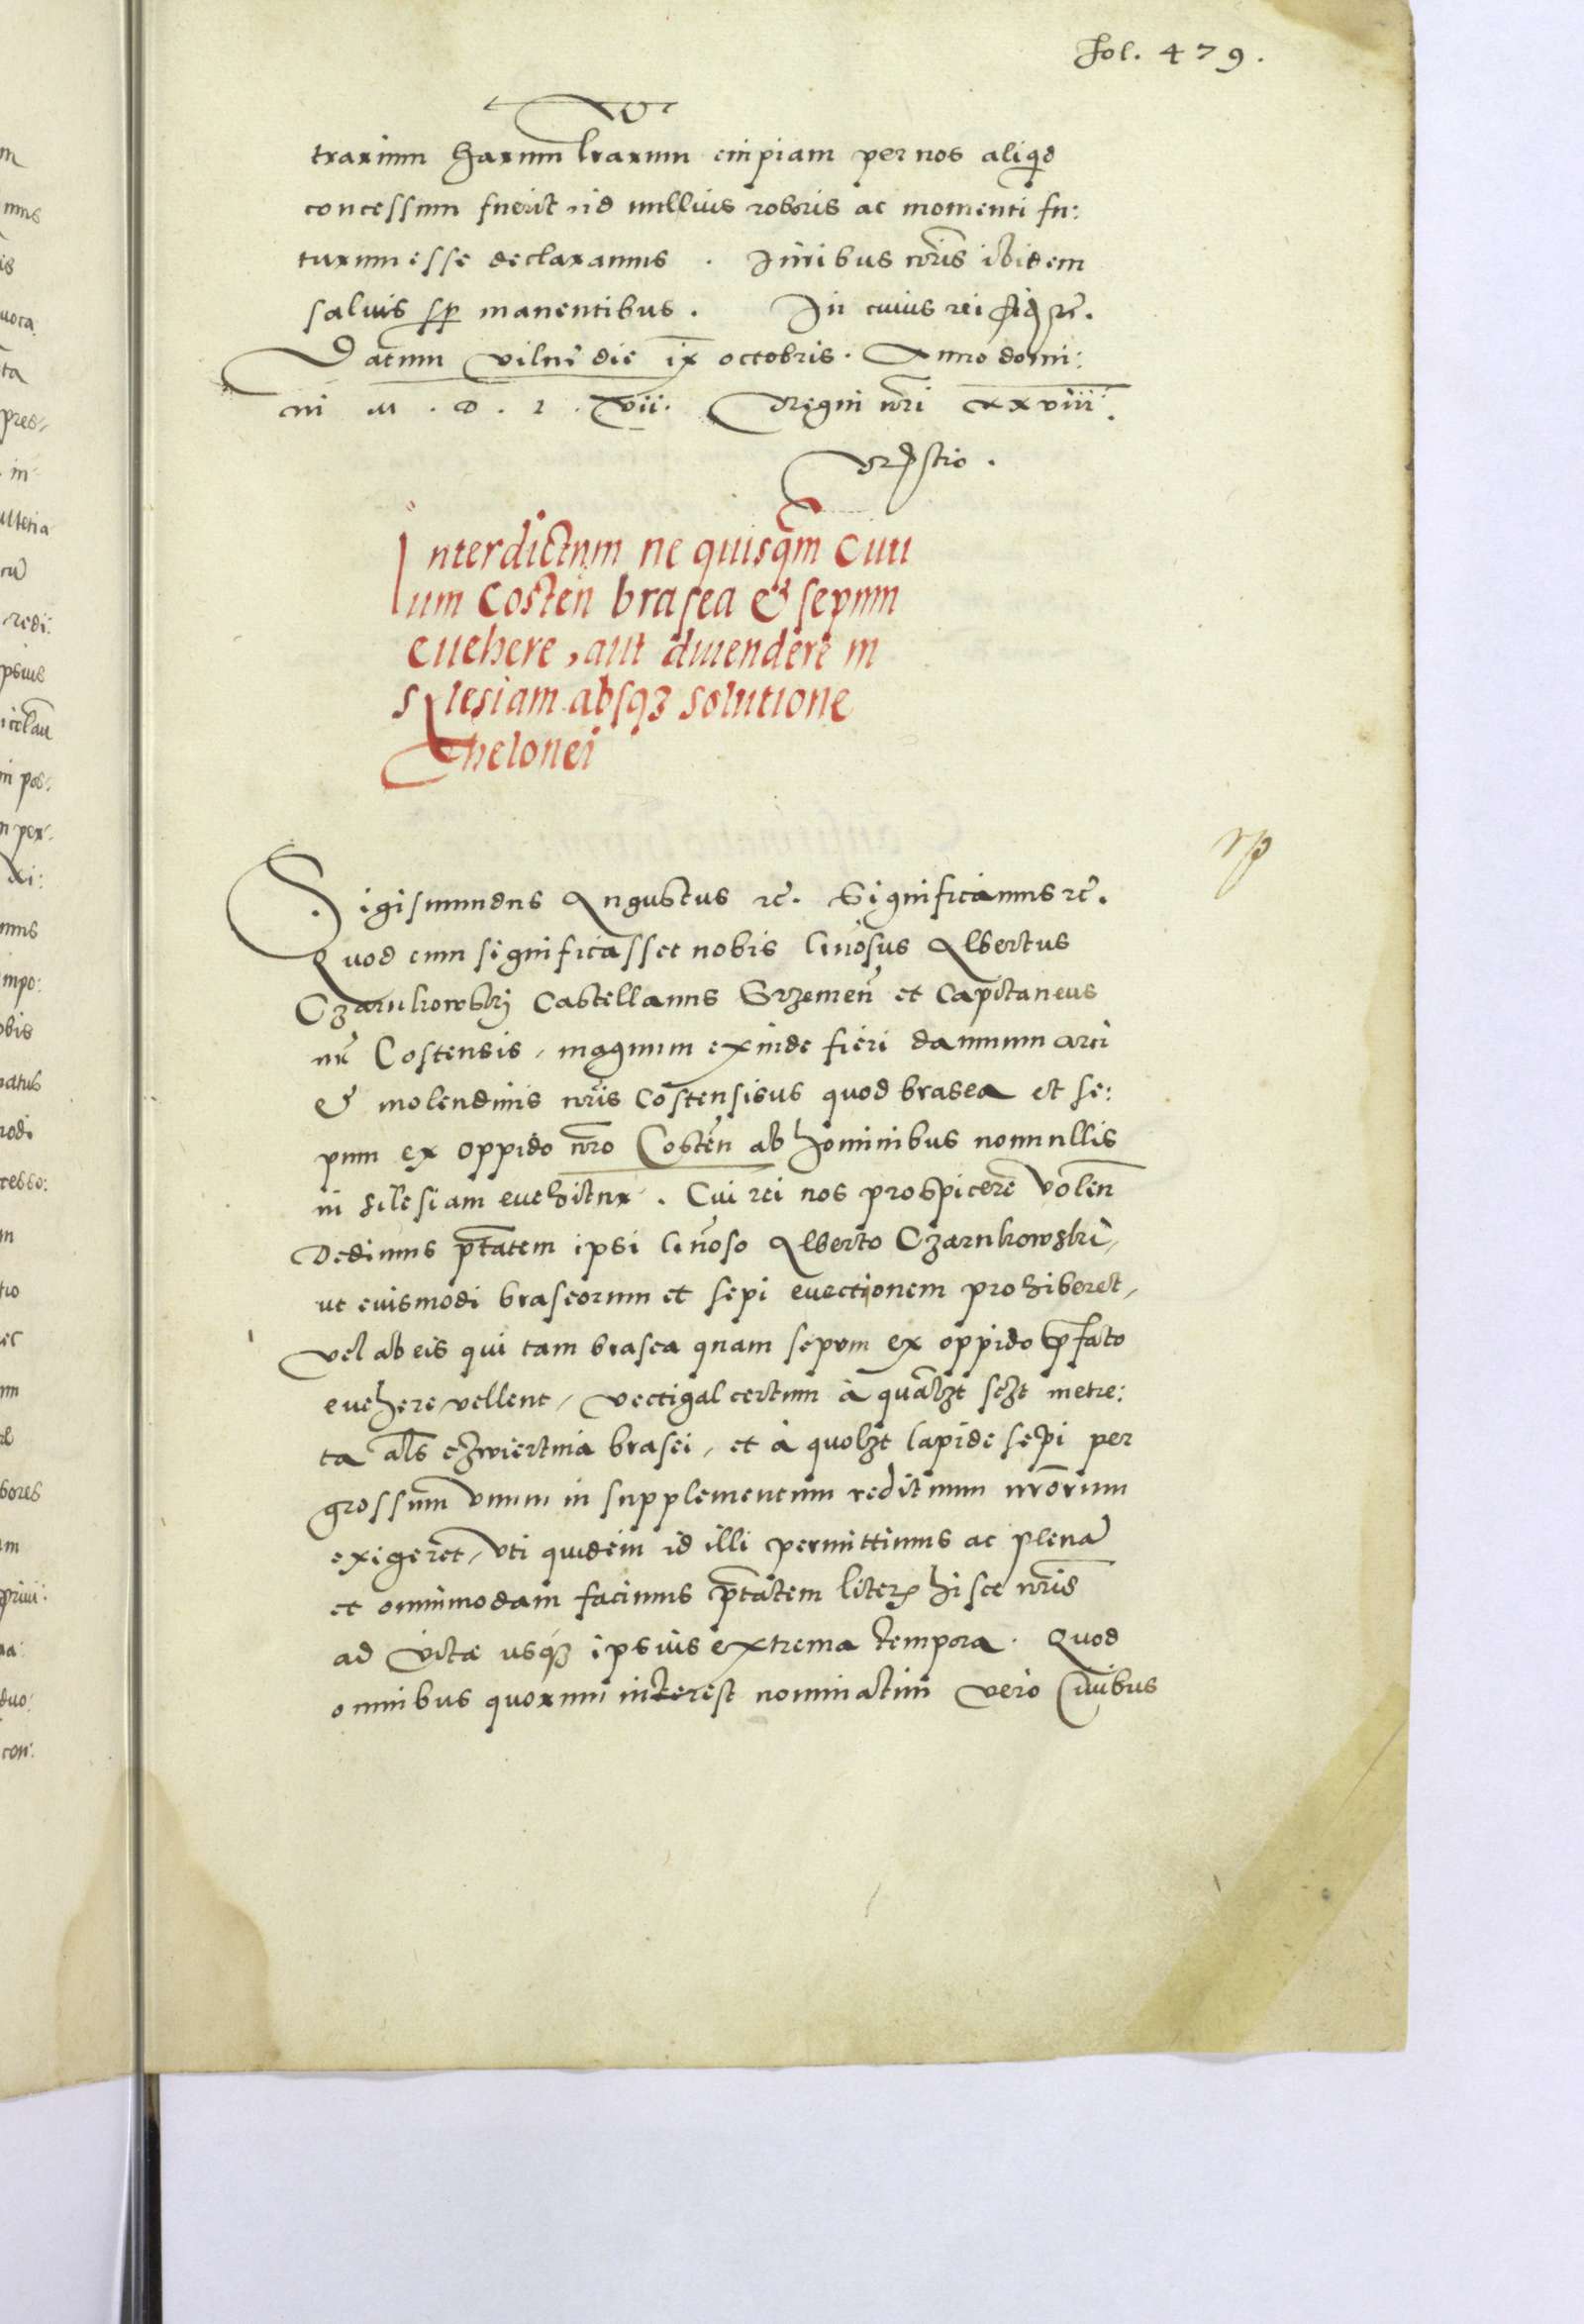 Fol. 479.
trarium harum lrarum cuipiam per nos aliqd
concessum fuerit id nullius roboris ac momenti fu:
turum esse declaramus . Iuribus nris ibidem
saluis sp manentibus . In cuius rei fid rc.
Datum Vilni die ix octobris . Anno domi:
ni M . D . L . vii . Regni nri xxviii.
Interdictum ne quisqm Ciui
um Costen brasea & sepum
euehere, aut diuendere in
Sylesiam absqz solutione
Thelonei
Sigismundus Augustus rc. Significamus rc.
Quod cum significasset nobis Gnosus Albertus
Czarnkowskj Castellanus Srzemen et Capitaneus
nr Costensis, magnum exinde fieri damnum arci
& molendinis nris Costensibus quod brasea et se:
pum ex oppido nro Costen ab hominibus nonnullis
in Silesiam euehitur . Cui rei nos prospicere volen
Dedimus ptatem ipsi Gnoso Alberto Czarnkowski,
ut eiusmodi braseorum et sepi euectionem prohiberet,
vel ab eis qui tam brasea quam sepum ex oppido pfato
euehere vellent, vectigal certum à qualzt metre:
ta als czwiertnia brasei, et à quolzt lapide sepi per
grossum vnum in supplementum redituum nrorum
exigeret, vti quidem id illi permittimus ac plena
et omnimodam facimus ptatem liter hisce nris
ad vitae usqz ipsius extrema tempora . Quod
omnibus quorum interest nominatim vero Ciuibus